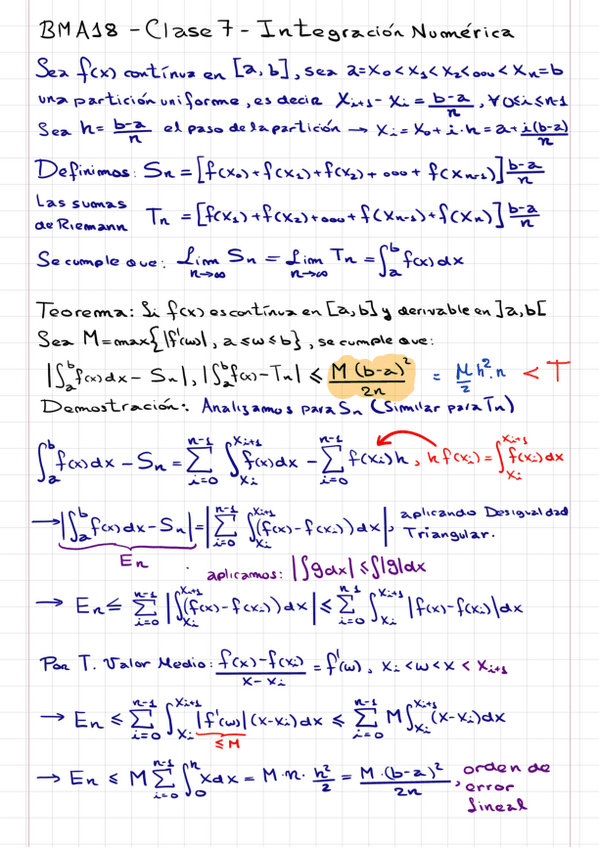 BMA18 - Clase 7 - Integración Numérica
Sea f(x) contínua en [a,b], sea a=x₀<x₁<x₂<ooo<xₙ=b
una partición uniforme, es decir xᵢ₊₁-xᵢ = (b-a)/n, ∀0≤i≤n-1
Sea h = (b-a)/n el paso de la partición → xᵢ = x₀+i·h = a+i(b-a)/n
Definimos: Sₙ = [f(x₀)+f(x₁)+f(x₂)+ooo+f(xₙ₋₁)] (b-a)/n
Las sumas de Riemann Tₙ = [f(x₁)+f(x₂)+ooo+f(xₙ₋₁)+f(xₙ)] (b-a)/n
Se cumple que: Lim_{n→∞} Sₙ = Lim_{n→∞} Tₙ = ∫ₐᵇ f(x)dx
Teorema: Si f(x) es contínua en [a,b] y derivable en ]a,b[
Sea M=max{|f'(w)|, a≤w≤b}, se cumple que:
|∫ₐᵇ f(x)dx - Sₙ|, |∫ₐᵇ f(x)-Tₙ| ≤ M(b-a)²/2n = M/2 h².n < T
Demostración: Analizamos para Sₙ (Similar para Tₙ)
∫ₐᵇ f(x)dx - Sₙ = ∑_{i=0}^{n-1} ∫_{xᵢ}^{xᵢ₊₁} f(x)dx - ∑_{i=0}^{n-1} f(xᵢ)h, h f(xᵢ) = ∫_{xᵢ}^{xᵢ₊₁} f(xᵢ)dx
→ |∫ₐᵇ f(x)dx - Sₙ| = |∑_{i=0}^{n-1} ∫_{xᵢ}^{xᵢ₊₁} (f(x)-f(xᵢ))dx|, aplicando Desigualdad Triangular.
Eₙ
aplicamos: |∫gdx| ≤ ∫|g|dx
→ Eₙ ≤ ∑_{i=0}^{n-1} |∫_{xᵢ}^{xᵢ₊₁} (f(x)-f(xᵢ))dx| ≤ ∑_{i=0}^{n-1} ∫_{xᵢ}^{xᵢ₊₁} |f(x)-f(xᵢ)|dx
Por T. Valor Medio: (f(x)-f(xᵢ))/(x-xᵢ) = f'(w), xᵢ<w<x<xᵢ₊₁
→ Eₙ ≤ ∑_{i=0}^{n-1} ∫_{xᵢ}^{xᵢ₊₁} |f'(w)|(x-xᵢ)dx ≤ ∑_{i=0}^{n-1} M ∫_{xᵢ}^{xᵢ₊₁} (x-xᵢ)dx
≤M
→ Eₙ ≤ M ∑_{i=0}^{n-1} ∫₀ʰ xdx = M·n·h²/2 = M·(b-a)²/2n, orden de error lineal